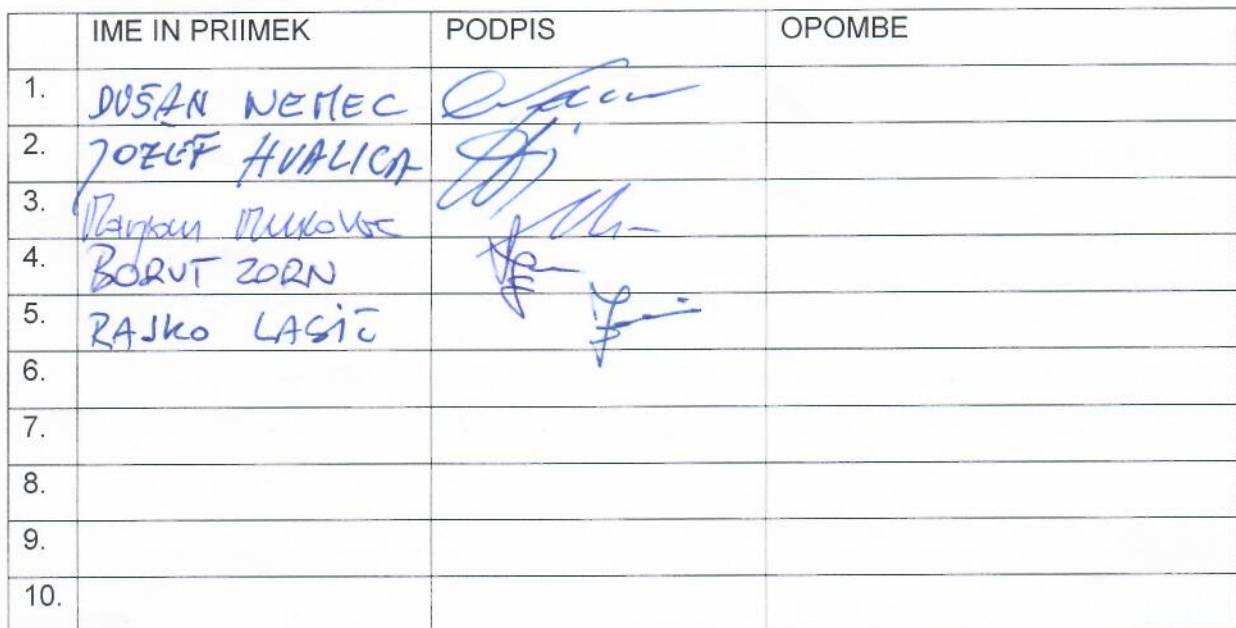 IME IN PRIIMEK PODPIS OPOMBE
1. DUŠAN NEMEC
2. JOŽEF HVALICA
3. Marjan
4. BORUT ZORN
5. RAJKO LASIČ
6.
7.
8.
9.
10.